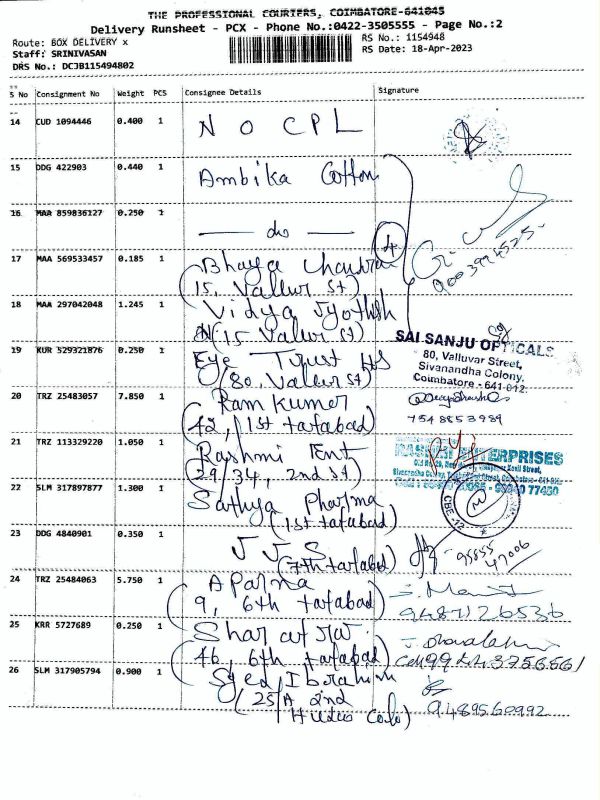 THE PROFESSIONAL COURIERS, COIMBATORE-641045
Delivery Runsheet - PCX - Phone No.:0422-3505555 - Page No.:2
Route: BOX DELIVERY x
RS No.: 1154948
Staff: SRINIVASAN
RS Date: 18-Apr-2023
DRS No.: DCJB115494802
S No Consignment No Weight PCS Consignee Details Signature
14 CUD 1094446 0.400 1 N O C P L
15 DDG 422903 0.440 1 Ambika Cotton
16 MAR 859836127 0.250 1 — do —
4
9003994525
17 MAA 569533457 0.185 1 Bhaya
(15, Vallur St)
18 MAA 297042048 1.245 1 Vidya Jyothish
(15 Vallur St)
SAI SANJU OPTICALS
80, Valluvar Street,
Sivanandha Colony,
Coimbatore - 641 012.
19 KUR 529321876 0.250 1 Eye Trust HS
(80, Vallur St)
20 TRZ 25483057 7.850 1 Ram Kumer
(42, 1st tatabad)
7548853989
21 TRZ 113329220 1.050 1 Rashmi Ent
(29/34, 2nd St)
ENTERPRISES
22 SLM 317897877 1.300 1 Sathya Pharma
(1st tatabad)
CBE-12
23 DDG 4840901 0.350 1 J J S
(7th tatabad)
95555
47006
24 TRZ 25484063 5.750 1 Aparna
(9, 6th tatabad)
9487126536
25 KRR 5727689 0.250 1
(46, 6th tatabad)
26 SLM 317905794 0.900 1 Syed Ibrahim
(25/A 2nd
9489560992